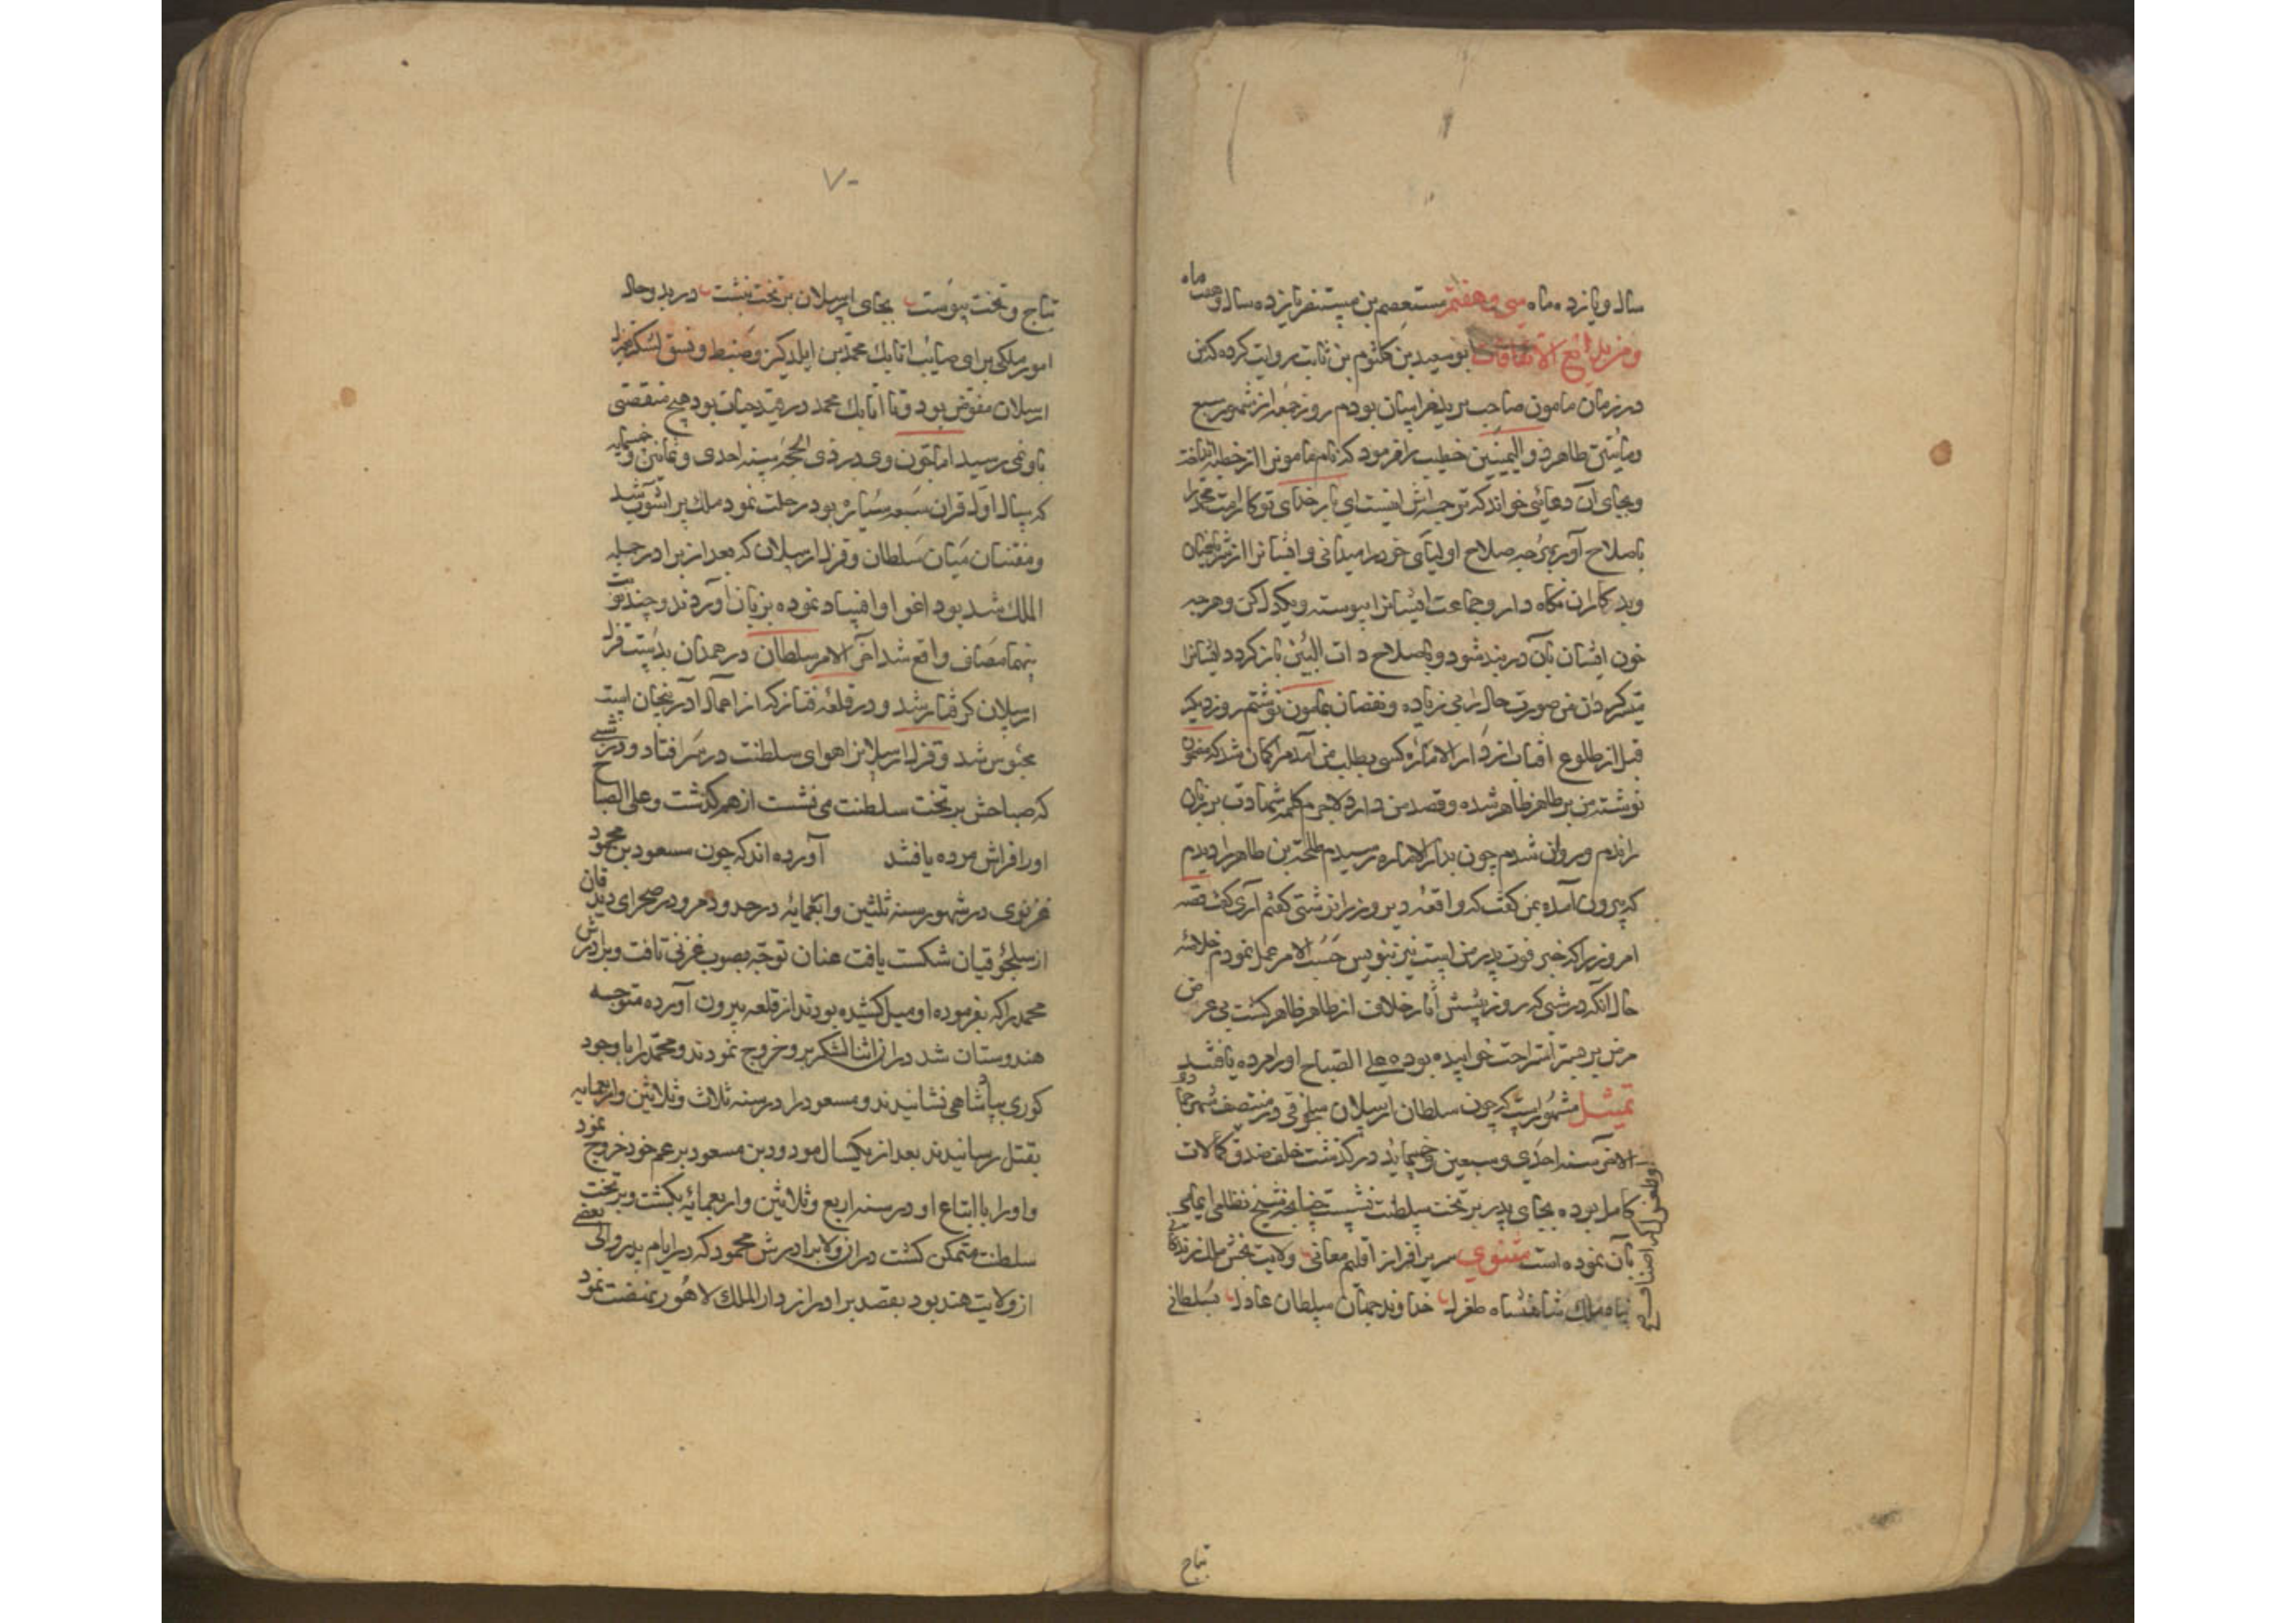 سال و یازده ماه سی و هفتم مستعصم بن مستنصر یازده سال و هفت ماه
و من بدایع الاتفاقات ابوسعید بن کلثوم بن ثابت روایت کرده که من
در زمان مامون صاحب برید خراسان بودم روز جمعه از شهور سبع
و مائتین طاهر ذو الیمینین خطیب را فرمود که نام مامون را از خطبه انداخته
و بجای آن دعائی خواند که ترجمه اش اینست ای بار خدای تو کار امت محمد را
باصلاح آور بهرچه صلاح اولیای خود را میدانی و ایشانرا از شر
و بدکاران نگاه دار و جماعت ایشانرا پیوسته و یکدل کن و هرچه
خون ایشان بآن در بند شود و باصلاح ذات البین باز کردد ایشانرا
میسر کردان من صورت حال را بی زیاده و نقصان بمامون نوشتم روز دیکر
قبل از طلوع افتاب از دار الاماره کسی بطلب من آمد مرا کمان شد که مضمون
نوشته من بر طاهر ظاهر شده و قصد من دارد لاجرم کلمه شهادت بر زبان
راندم و روان شدم چون بدار الاماره رسیدم طلحة بن طاهر را دیدم
که بیرون آمده بمن کفت که واقعه دیروز را نوشتی کفتم آری کفت قصه
امروز را که خبر فوت پدر من است نیز بنویس حسب الامر عمل نمودم خلاصه
حال آنکه در شبی که روز پیشش آثار خلاف از طاهر ظاهر کشت بی عرض
مرض بر بستر استراحت خوابیده بوده علی الصباح او را مرده یافتند
تمثیل مشهور است که چون سلطان ارسلان سلجوقی در منتصف شهر جمادی
الاخر سنه احدی و سبعین و خمسمایه در کذشت خلف صدق کمالات
کامل بوده بجای پدر بر تخت سلطنت نشست چنانچه شیخ نظامی ایمایی
بآن نموده است مثنوی سریر افراز اقلیم معانی ولایت بخش ملک زندکانی
پناه ملک شاهنشاه طغرل خداوند جهان سلطان عادل بسلطانی
بتاج
۷۰
بتاج و تخت پیوست بجای ارسلان بر تخت بنشست در بدو حال
امور ملکی برای صایب اتابک محمد بن ایلدکز و ضبط و نسق لشکر بقزل
ارسلان مفوض بود و تا اتابک محمد در قید حیات بود هیچ منقصتی
باو نمی رسید اما چون وی در ذی الحجه سنه احدی و ثمانین و خمسمایه
که سال اول قران سبعه سیاره بود رحلت نمود ملک پر آشوب شد
و مفتنان میان سلطان و قزل ارسلان که بعد از برادر جمله
الملک شد بود اغوا و افساد نموده بزبان آوردند و چند نوبت
بینهما مصاف واقع شد آخر الامر سلطان در همدان بدست قزل
ارسلان کرفتار شد و در قلعه که از اعمال آذربیجان است
محبوس شد و قزل ارسلانرا هوای سلطنت در سر افتاد و در شبی
که صباحش بر تخت سلطنت می نشست از هم کذشت و علی الصباح
او را فراش مرده یافتند آورده اند که چون مسعود بن محمود
غزنوی در شهور سنه ثلثین و اربعمایه در حدود مرو در صحرای دندانقان
از سلجوقیان شکست یافت عنان توجه بصوب غزنی تافت و برادرش
محمد را که بفرموده او میل کشیده بودند از قلعه بیرون آورده متوجه
هندوستان شد در آن اثنا لشکر برو خروج نمودند و محمد را با وجود
کوری بپادشاهی نشانیدند و مسعود را در سنه ثلاث و ثلاثین و اربعمایه
بقتل رسانیدند بعد از یکسال مودود بن مسعود بر عم خود خروج نمود
و او را با اتباع او در سنه اربع و ثلاثین و اربعمائه بکشت و بر تخت
سلطنت متمکن کشت در آن ولا برادرش محمود که در ایام پدر والی بعضی
از ولایت هند بود بقصد برادر از دار الملک لاهور نهضت نمود